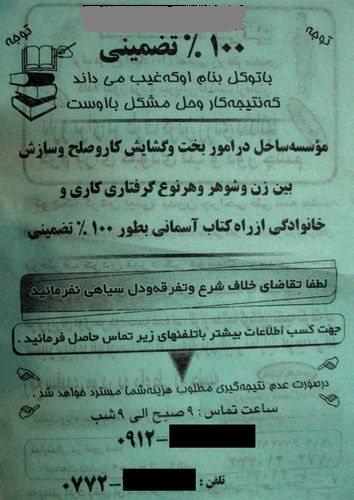 توجه
توجه
۱۰۰ ٪ تضمینی
باتوکل بنام اوکه غیب می داند
که نتیجه کار وحل مشکل بااوست
مؤسسه ساحل درامور بخت وگشایش کاروصلح وسازش
بین زن وشوهر وهرنوع گرفتاری کاری و
خانوادگی ازراه کتاب آسمانی بطور ۱۰۰ ٪ تضمینی
لطفا تقاضای خلاف شرع وتفرقه ودل سیاهی نفرمائید
جهت کسب اطلاعات بیشتر باتلفنهای زیر تماس حاصل فرمائید .
درصورت عدم نتیجه گیری مطلوب هزینه شما مسترد خواهد شد .
ساعت تماس : ۹ صبح الی ۹ شب
۰۹۱۲-
تلفن : ۰۷۷۲-